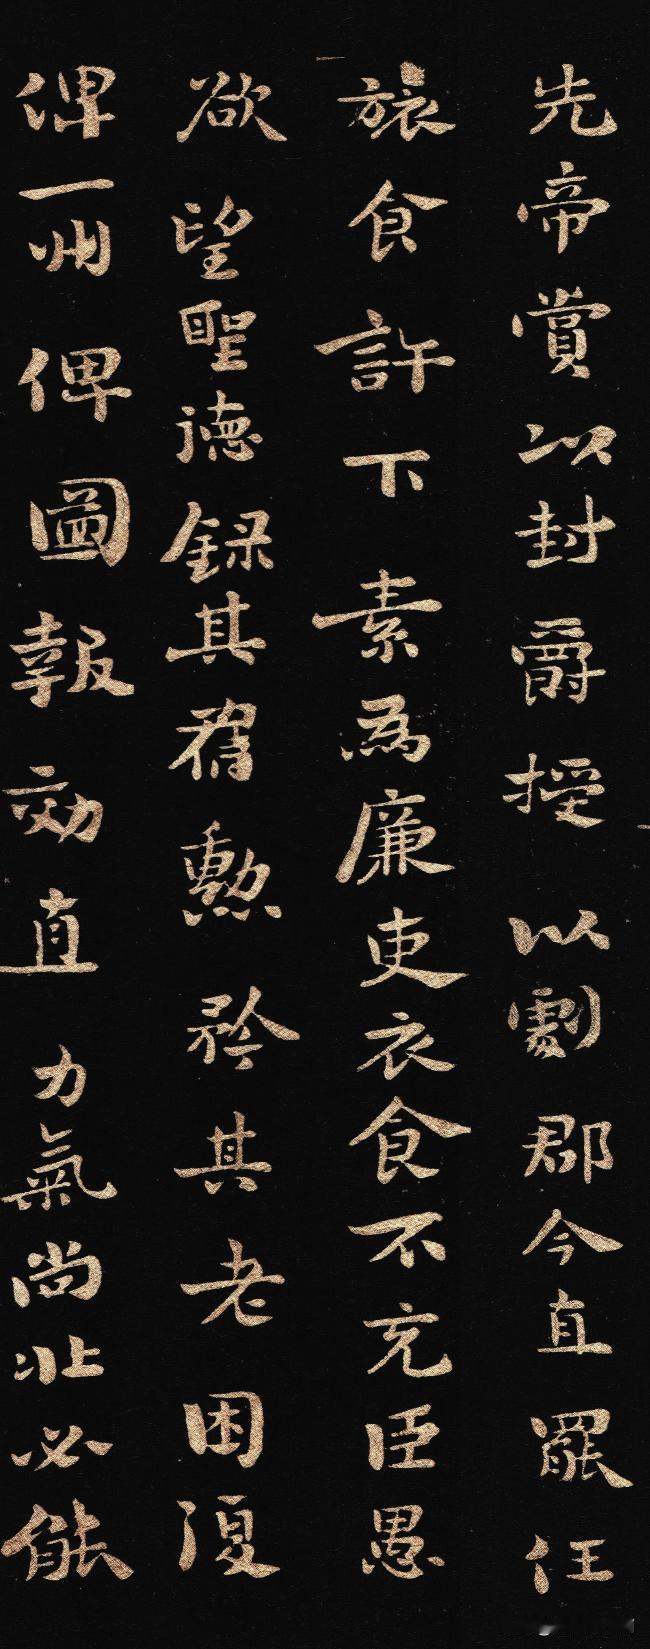 先帝賞以封爵授以劇郡今直罷任
旅食許下素為廉吏衣食不充臣愚
欲望聖德録其舊勳矜其老困復
俾一州俾圖報効直力氣尚壯必能